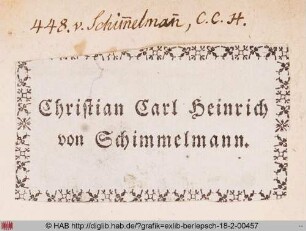 448. v. Schim̄elman̄, C. C. H.
Christian Carl Heinrich
von Schimmelmann.
© HAB http://diglib.hab.de/?grafik=exlib-berlepsch-18-2-00457